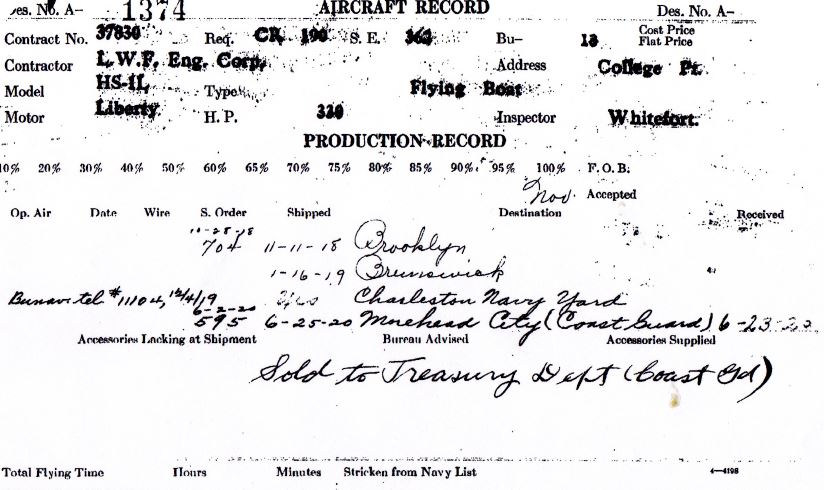 Des. No. A– 1374 AIRCRAFT RECORD Des. No. A–
Contract No. 37830 Req. CR 190 S. E. 362 Bu– 13 Cost Price Flat Price
Contractor L.W.F. Eng. Corp. Address College Pt.
Model HS-1L Type Flying Boat
Motor Liberty H. P. 330 Inspector Whitefort.
PRODUCTION RECORD
10% 20% 30% 40% 50% 60% 65% 70% 75% 80% 85% 90% 95% 100% F. O. B.
Nov. Accepted
Op. Air Date Wire S. Order Shipped Destination Received
10-28-18
704 11-11-18 Brooklyn
1-16-19 Brunswick
Bunav. tel #1104, 12/4/19 Charleston Navy Yard
6-2-20
595 6-25-20 Morehead City (Coast Guard) 6-23-20
Accessories Lacking at Shipment Bureau Advised Accessories Supplied
Sold to Treasury Dept (Coast Gd)
Total Flying Time Hours Minutes Stricken from Navy List 4—4198